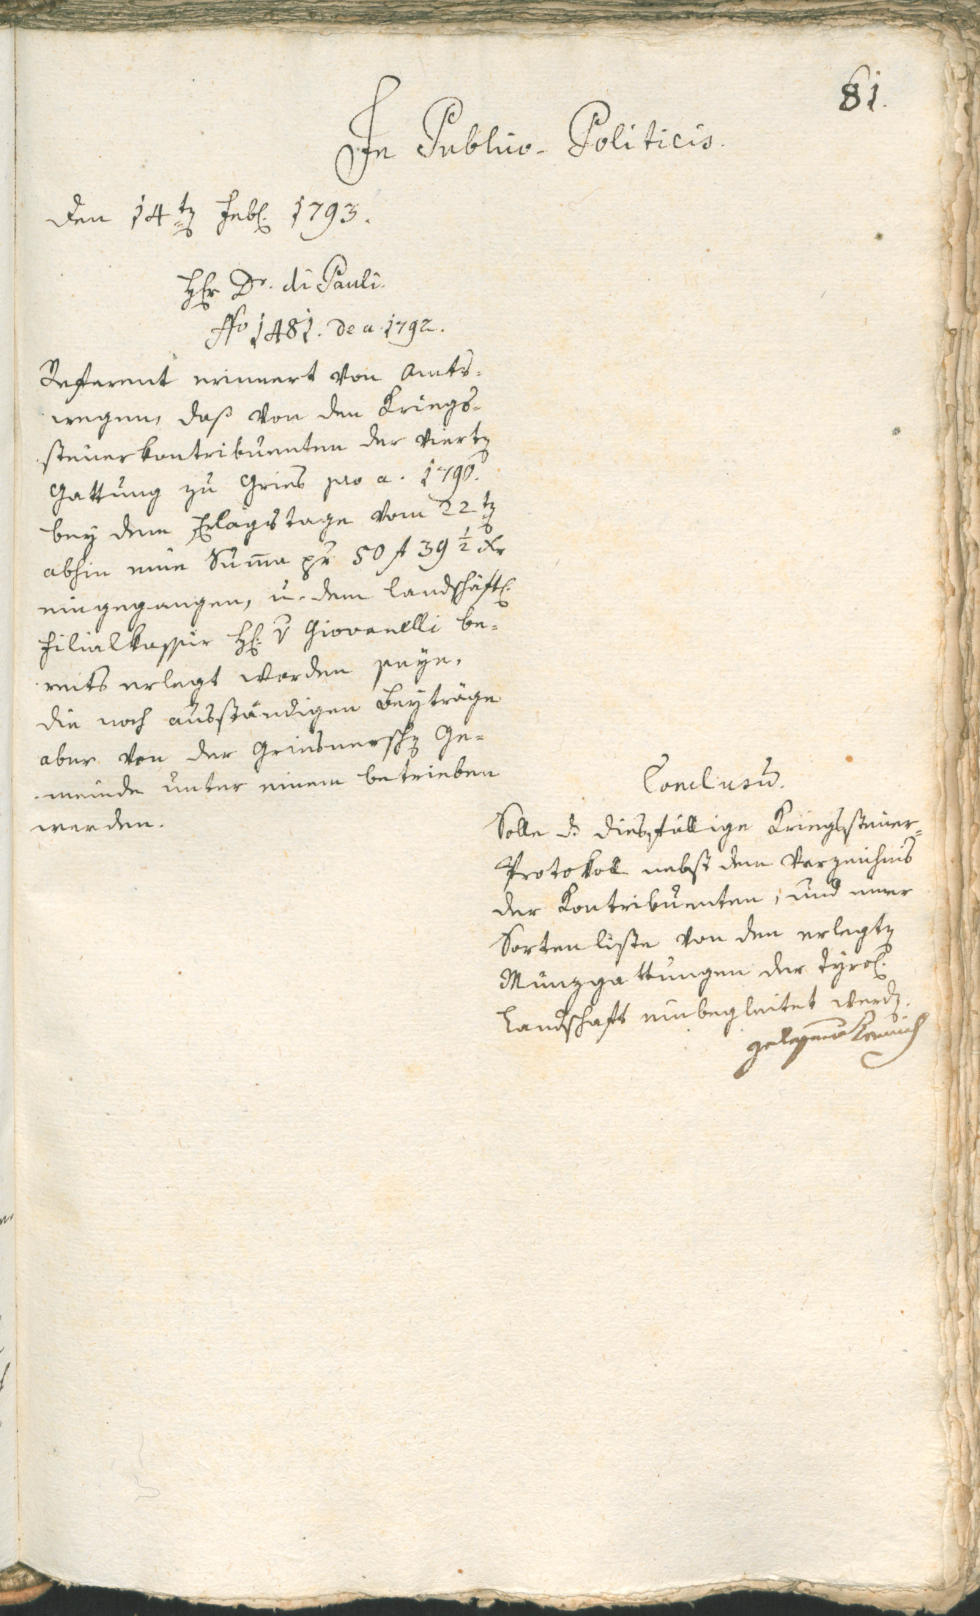 81.
In Publico-Politicis.
Den 14tn Febr. 1793.
Hr Dr. di Pauli.
No 1481. de a. 1792.
Referent erinnert von Amts-
wegen, daß von den Kriegs-
steuerkontribuenten der viertn
Gattung zu Gries pro a. 1790.
bey dem Erlagstage vom 22tn
abhin eine Suma pr 50 f 39 1/2 Xr
eingegangen, u. dem landschäftl.
Filialkassier H. v Giovanelli be-
reits erlegt worden seye,
die noch ausständigen Beyträge
aber von der Griesnerschn Ge-
meinde unter einem betrieben
werden.
Conclusum.
Solle das diesfällige Kriegssteuer-
Protokoll nebst dem Verzeichnis
der Kontribuenten, und einer
Sortenliste von den erlegtn
Münzgattungen der Tyrol.
Landschaft einbegleitet werdn.